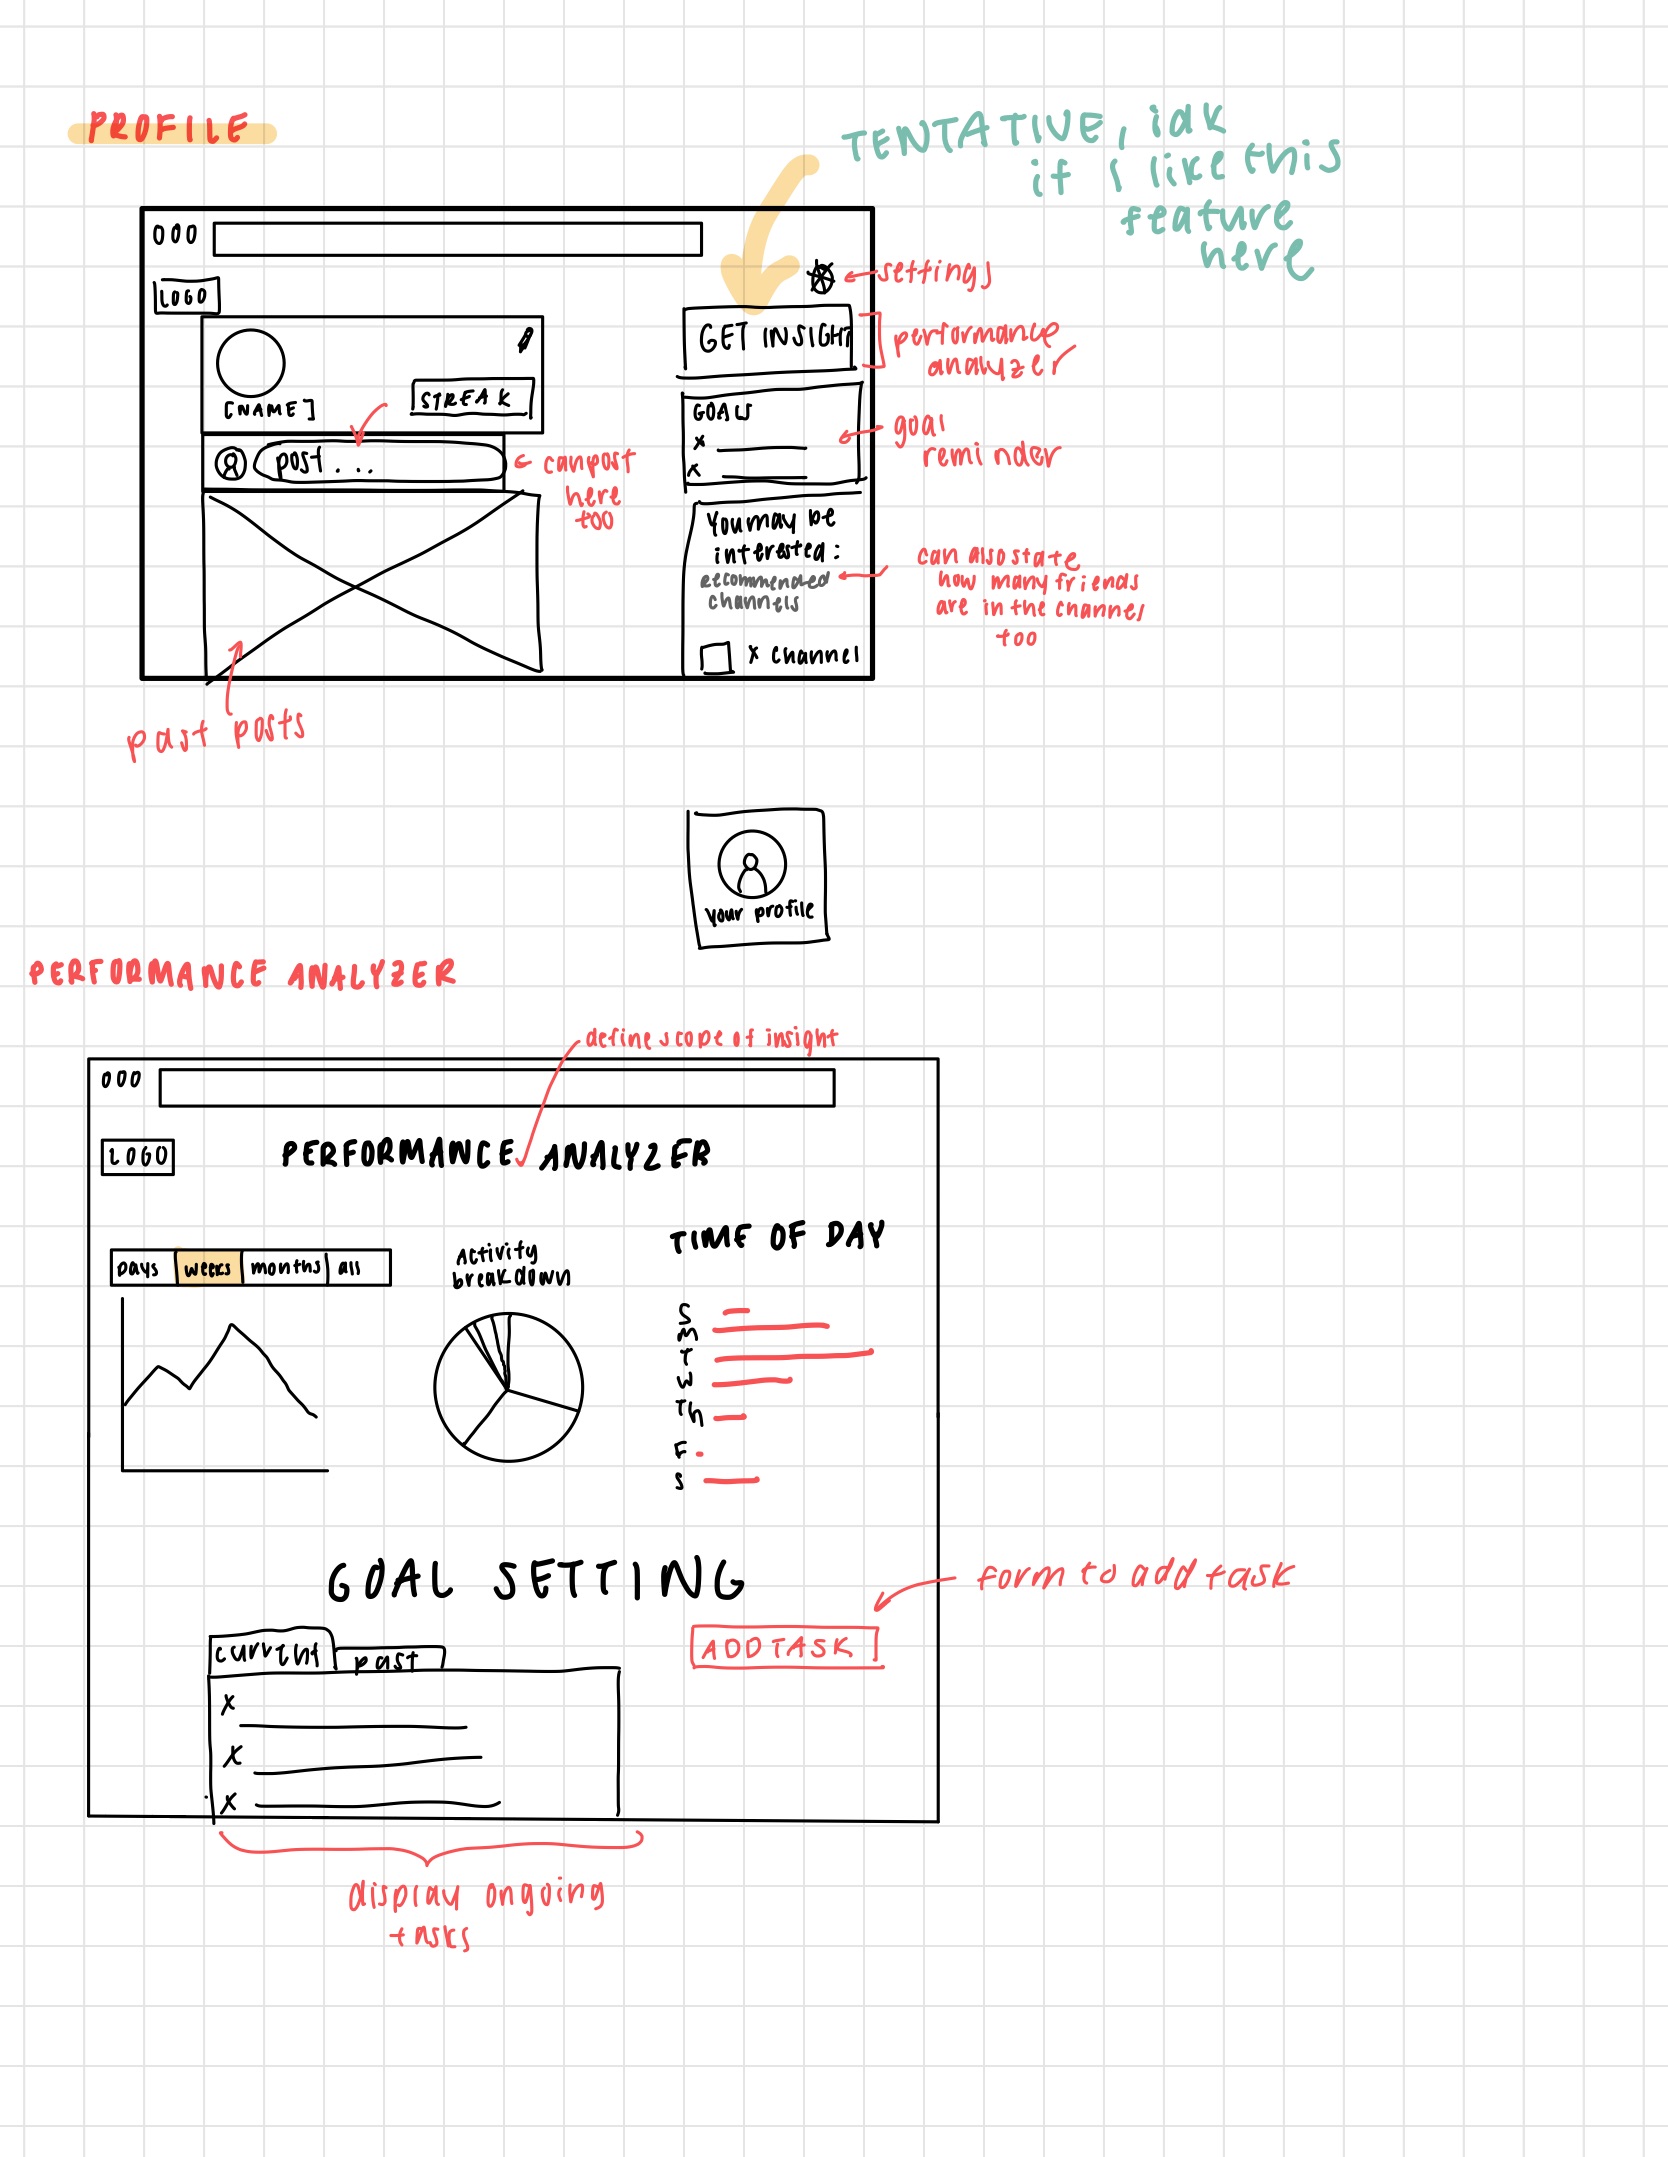 PROFILE
TENTATIVE, idk
if I like this
feature
here
000
settings
LOGO
GET INSIGHT
performance
analyzer
[NAME]
STREAK
GOALS
x
x
goal
reminder
post...
can post
here
too
You may be
interested:
recommended
channels
can also state
how many friends
are in the channel
too
x channel
past posts
your profile
PERFORMANCE ANALYZER
define scope of insight
000
LOGO
PERFORMANCE ANALYZER
TIME OF DAY
days weeks months all
Activity
breakdown
S
M
T
W
Th
F
S
GOAL SETTING
form to add task
current past
ADD TASK
x
x
x
display ongoing
tasks